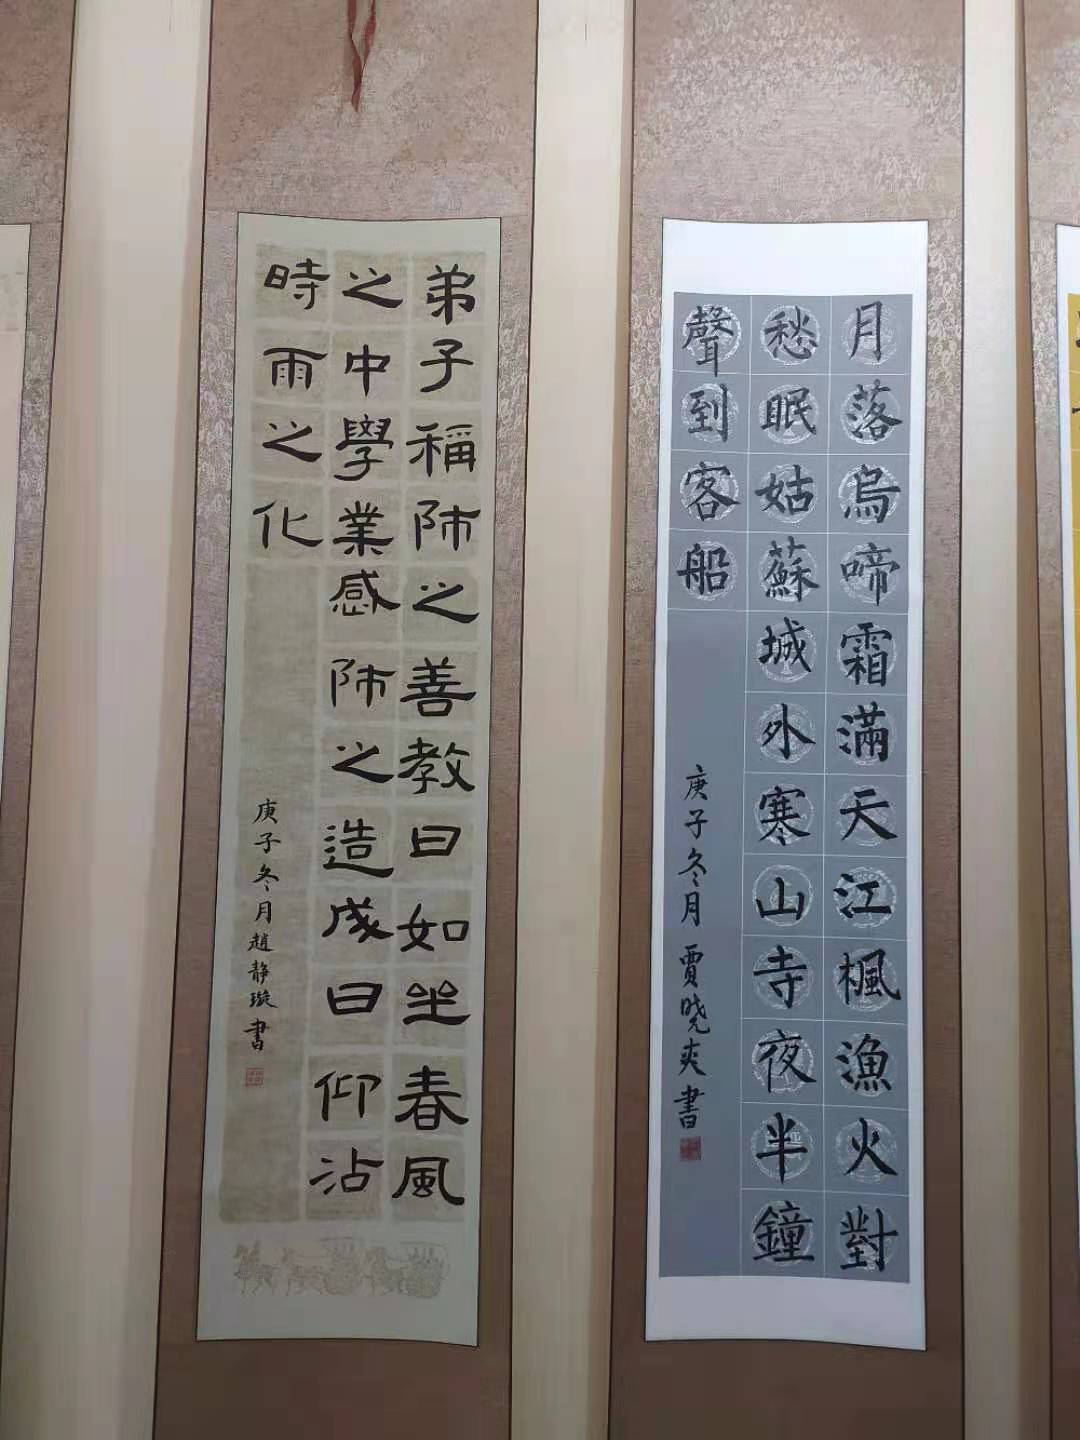 月落烏啼霜滿天江楓漁火對
愁眠姑蘇城外寒山寺夜半鐘
聲到客船
庚子冬月賈晓爽書
弟子稱師之善教曰如坐春風
之中學業感師之造成曰仰沾
時雨之化
庚子冬月趙静璇書